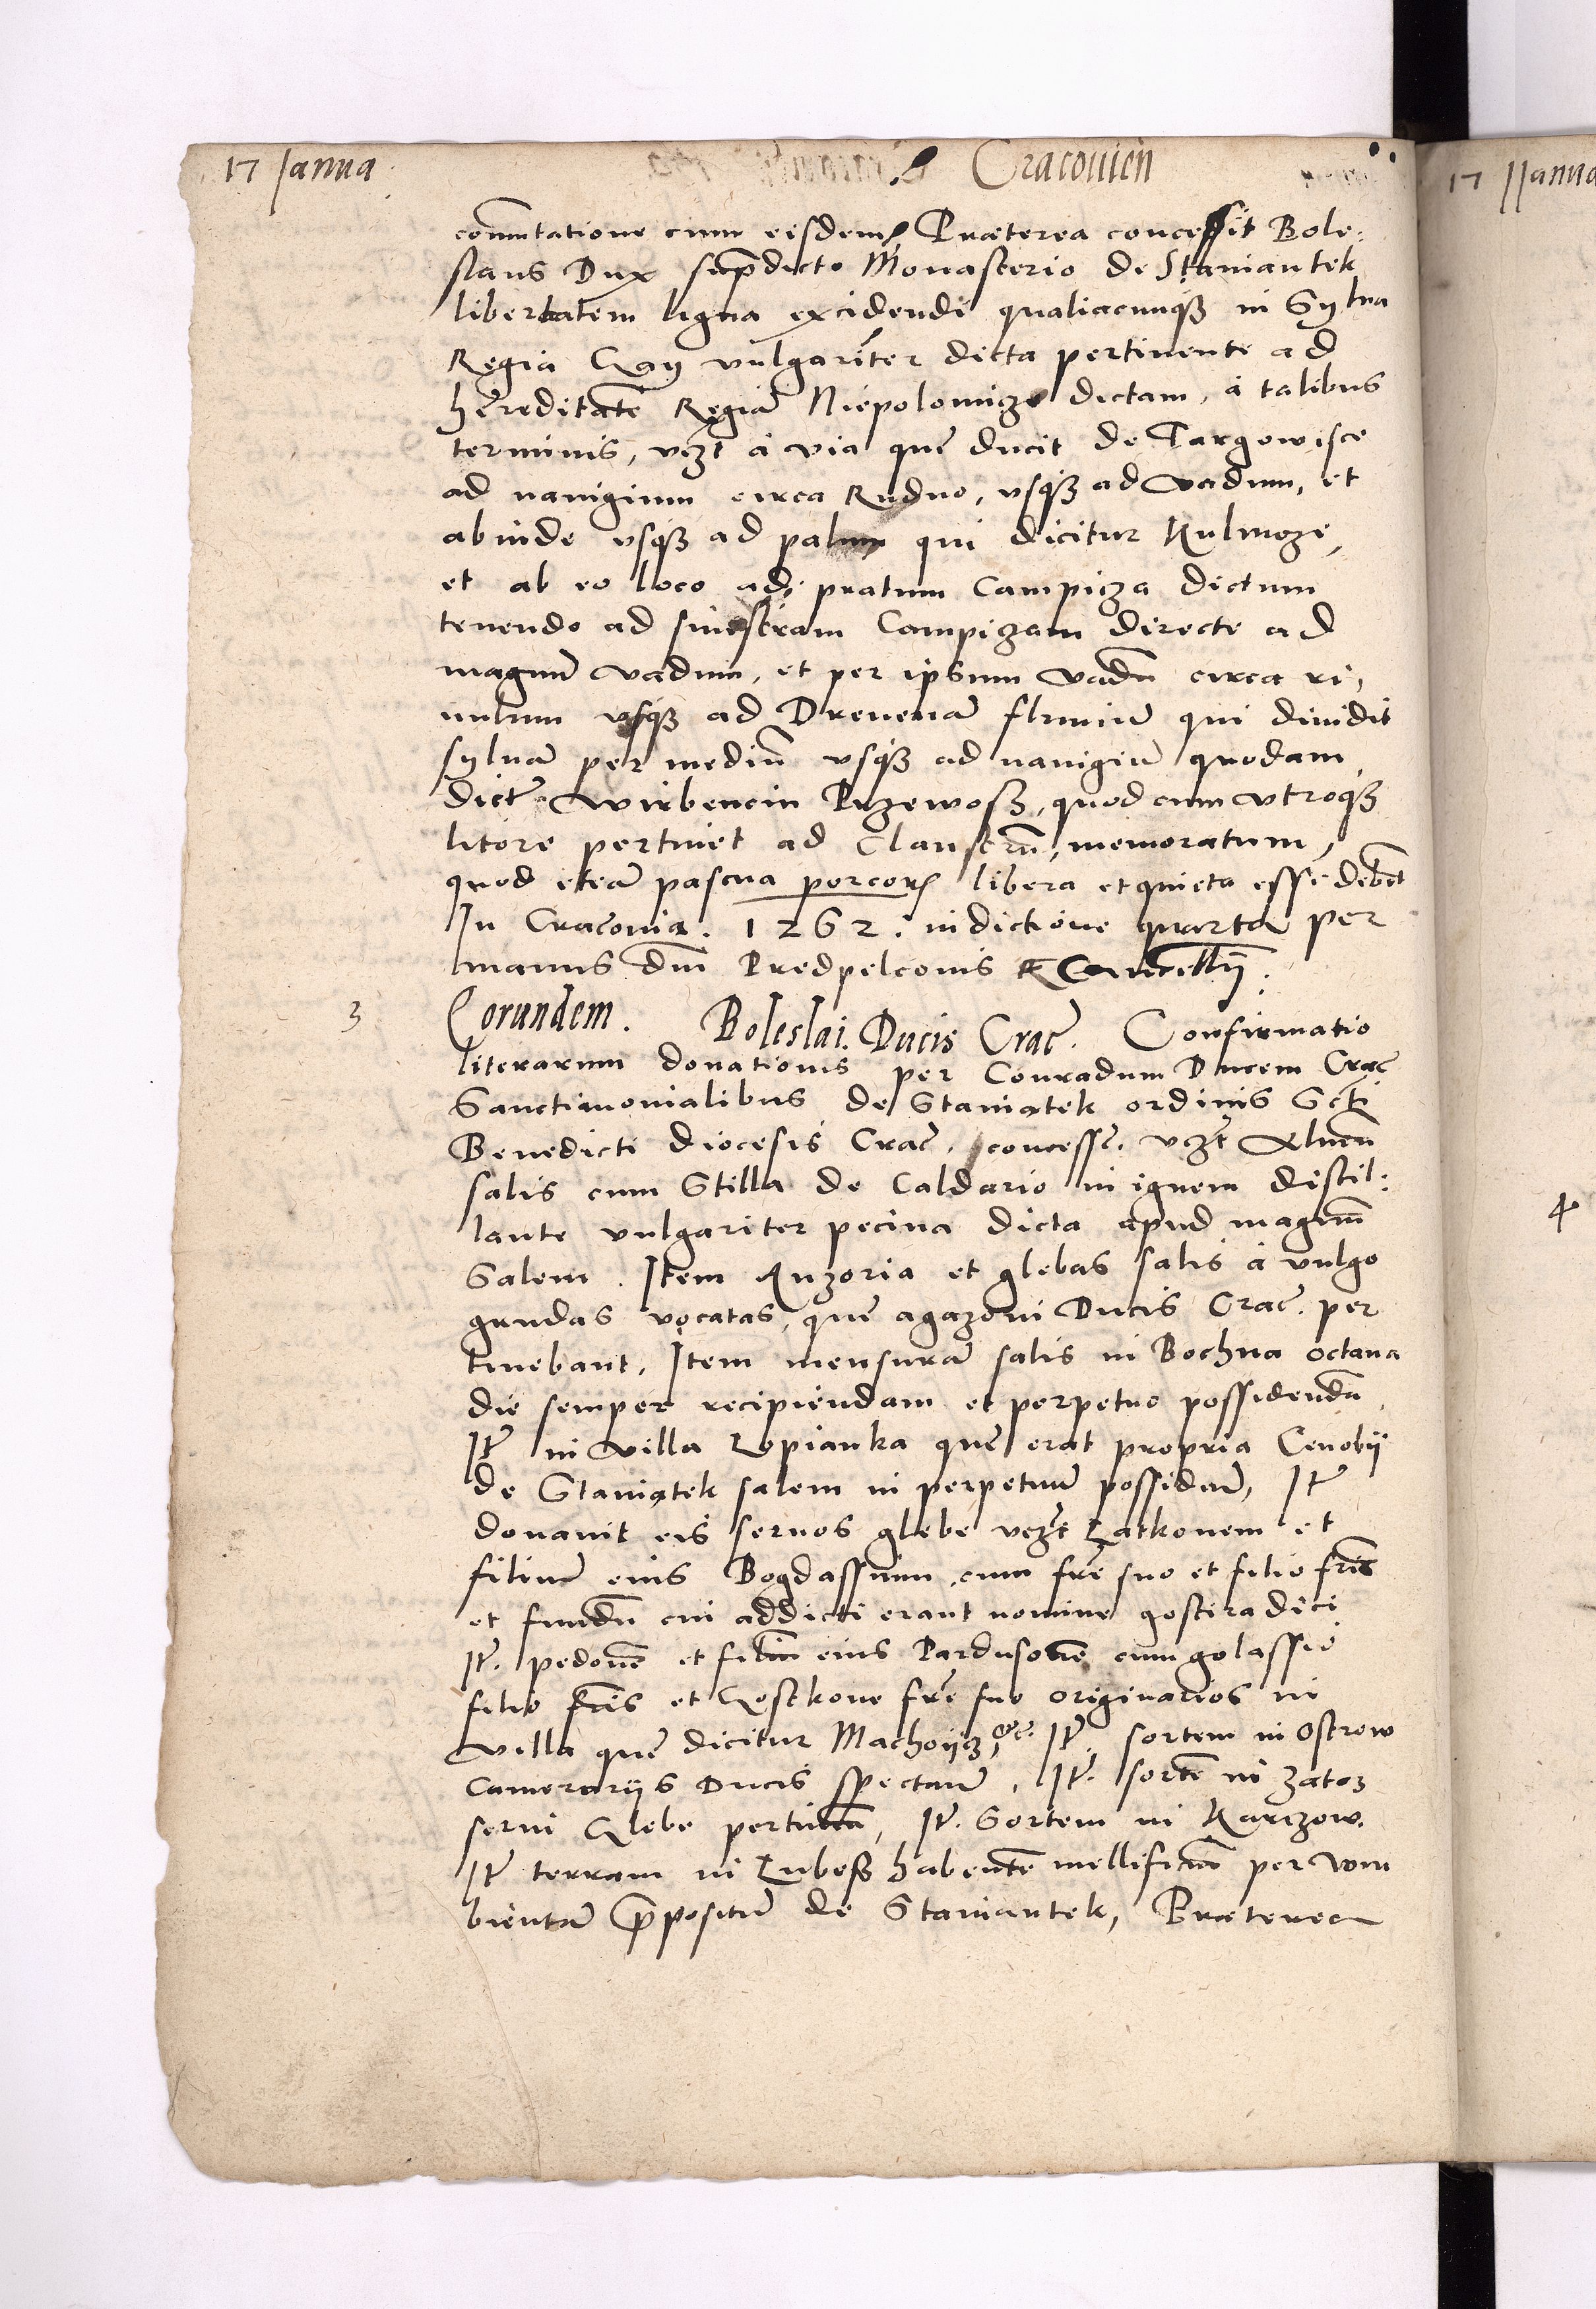 17 Janua
Cracouien
commutatione cum eisdem, Præterea concessit Bole:
slaus Dux supradicto Monasterio de Staniantek
libertatem ligna excidendi qualiacunque in Sylua
Regia Gay vulgariter dicta pertinente ad
hereditatē Regiā Niepolomicze dictam, à talibus
terminis, vczt à via que ducit de Targowisce
ad nauigium circa Rudno, vsque ad vadum, et
abinde vsque ad palum qui dicitur Kulmoze,
et ab eo loco ad pratum Campicza dictum
tenendo ad sinistram Campiczam directe ad
magnū vadum, et per ipsum vadū circa ri,
uulum vsque ad Dreuenā fluuiū qui diuidit
syluā per mediū vsque ad nauigiū quodam
dictū Wirbencin Przewoß, quod cum vtroque
litore pertinet ad Claustrū, memoratum,
quod etiā pascua porcorum libera et quieta esse debēt
In Cracouia. 1262. indictione quarta per
manus dni Predpelconis Cancellrij.
3 Eorundem. Boleslai Ducis Crac. Confirmatio
literarum donationis per Conradum Ducem Crac
Sanctimonialibus de Staniątek ordinis Scti
Benedicti diocesis Crac. concess. vczt Alueū
salis cum Stilla de Caldario in ignem distil:
lante vulgariter pecina dicta apud magnum
Salem. Item Ruzoria et glebas salis à vulgo
grudas vocatas, que agazoni Ducis Crac. per
tinebant, Item mensurā salis in Bochna octaua
die semper recipiendam et perpetuo possidendā
Itē in villa Lopianka que erat propria Cenobij
de Staniątek salem in perpetuū possidendū, Itē
donauit eis seruos glebe vczt Latkonem et
filium eius Bogdassium cum fre suo et filio fris
et fundū cui addicti erant nomine gostiradici
Itē. pedonē et filiū eius Pardusonē cum golassio
filio fris et Gostkone fre suo originarios in
villa que dicitur Machoijcz, &c. Itē sortem in Ostrow
Camerarijs Ducis spectantē, Itē. sortē in Zator
serui Glebe pertinentē, Itē. Sortem in Karczow.
Itē terram in Lubeß habentē mellificiū per Wm
bientā præpositū de Staniantek, Præterea
17 Janua
4